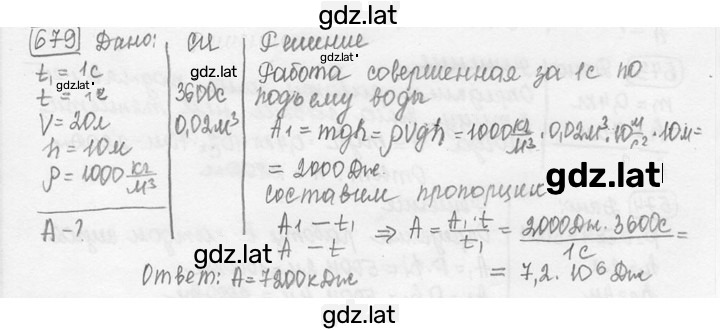 gdz.lat
679 Дано: СИ Решение
t₁ = 1с
gdz.lat
t = 1ч 3600с
V = 20л 0,02м³
h = 10м
ρ = 1000 кг/м³
A - ?
Работа совершенная за 1с по
подъему воды
A₁ = mgh = ρVgh = 1000 кг/м³ · 0,02м³ · 10 м/с² · 10м =
= 2000 Дж.
gdz.lat
составим пропорцию
A₁ – t₁
A – t
⇒ A = A₁·t/t₁ = 2000Дж·3600с/1с =
= 7,2·10⁶ Дж
Ответ: A = 7200кДж
gdz.lat